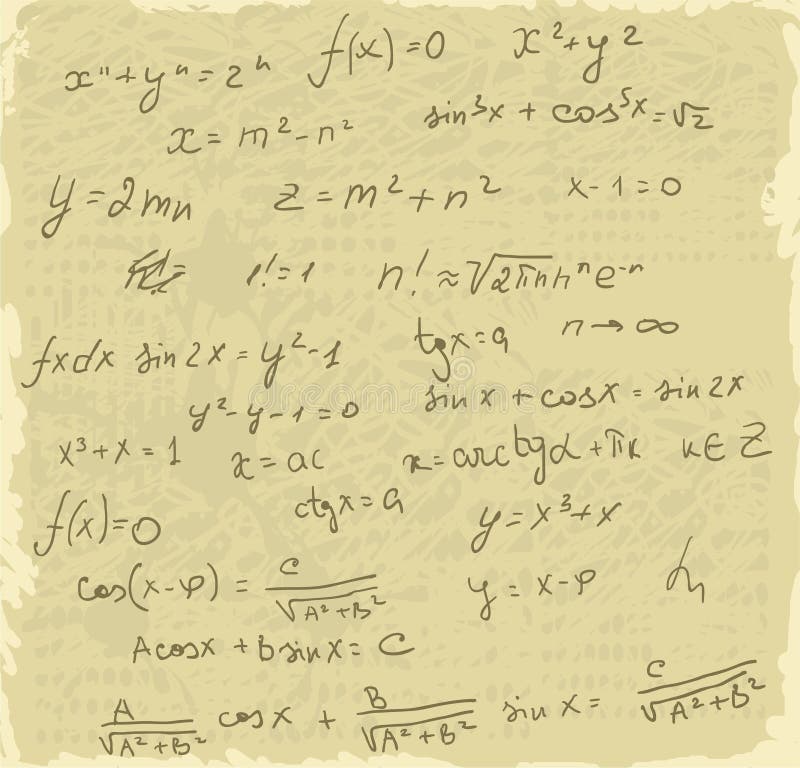 xⁿ + yⁿ = 2ⁿ f(x) = 0 x² + y²
x = m² - n² sin³x + cos⁵x = √2
y = 2mn z = m² + n² x - 1 = 0
1! = 1 n! ≈ √2πn nⁿ e⁻ⁿ
fxdx sin 2x = y² - 1 tgx = a n → ∞
y² - y - 1 = 0 sin x + cosx = sin 2x
x³ + x = 1 x = ac x = arctgα + πk k ∈ Z
f(x) = 0 ctgx = a y = x³ + x
cos(x - φ) = C/√A² + B² y = x - φ
Acosx + Bsinx = C
A/√A² + B² cosx + B/√A² + B² sin x = C/√A² + B²
dreamstime